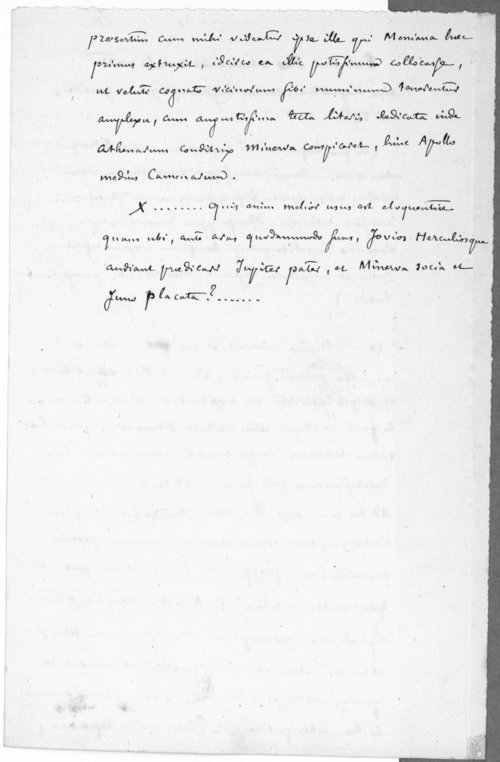 præsertim cum mihi videatur ipse ille qui Moeniana hæc
primus extruxit, idcirco ea illic potissimum collocasse,
ut veluti cognato vicinorum sibi numinum tenerentur
amplexu, cum augustissima tecta literis dedicata inde
Athenarum conditrix Minerva conspiceret, hinc Apollo
medius Camenarum.
X ........ Quis enim melior usus est eloquentiæ
quam ubi, ante aras quodammodo suas, Jovios Herculiosque
audiant prædicari Jupiter pater, et Minerva socia et
Juno placata? .......